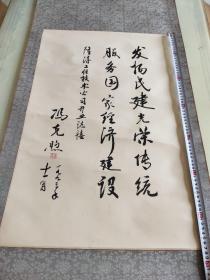 发扬民建光荣传统
服务国家经济建设
陆海工程技术公司开业志禧
冯克煦
一九九三年
十一月